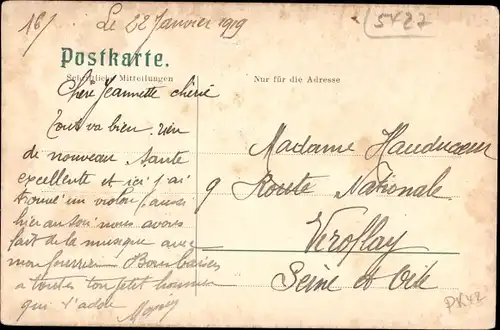 16/ Le 22 Janvier 1919
5427
Postkarte.
Schriftliche Mitteilungen
Nur für die Adresse
Chère Jeannette chérie
Tout va bien. rien
de nouveau. Santé
excellente et ici j'ai
trouvé un violon aussi
hier au soir nous avons
fait de la musique avec
mon fourrier. Bons baisers
a toutes ton petit homme
qui t'adore
Madame Hauducoeur
9 Route Nationale
Viroflay
Seine et Oise
PK42